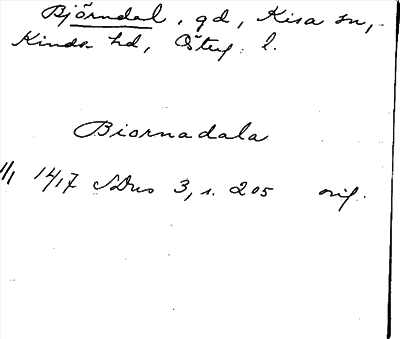 Björndal, gd, Kisa sn,
Kinda hd, Östergl. l.
Biornadala
1/1 1417 SDns 3, s. 205 orig.